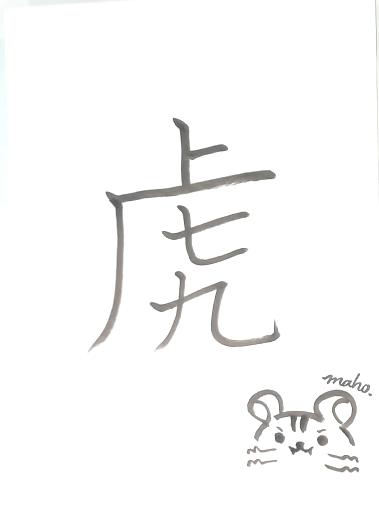 虎
maho.